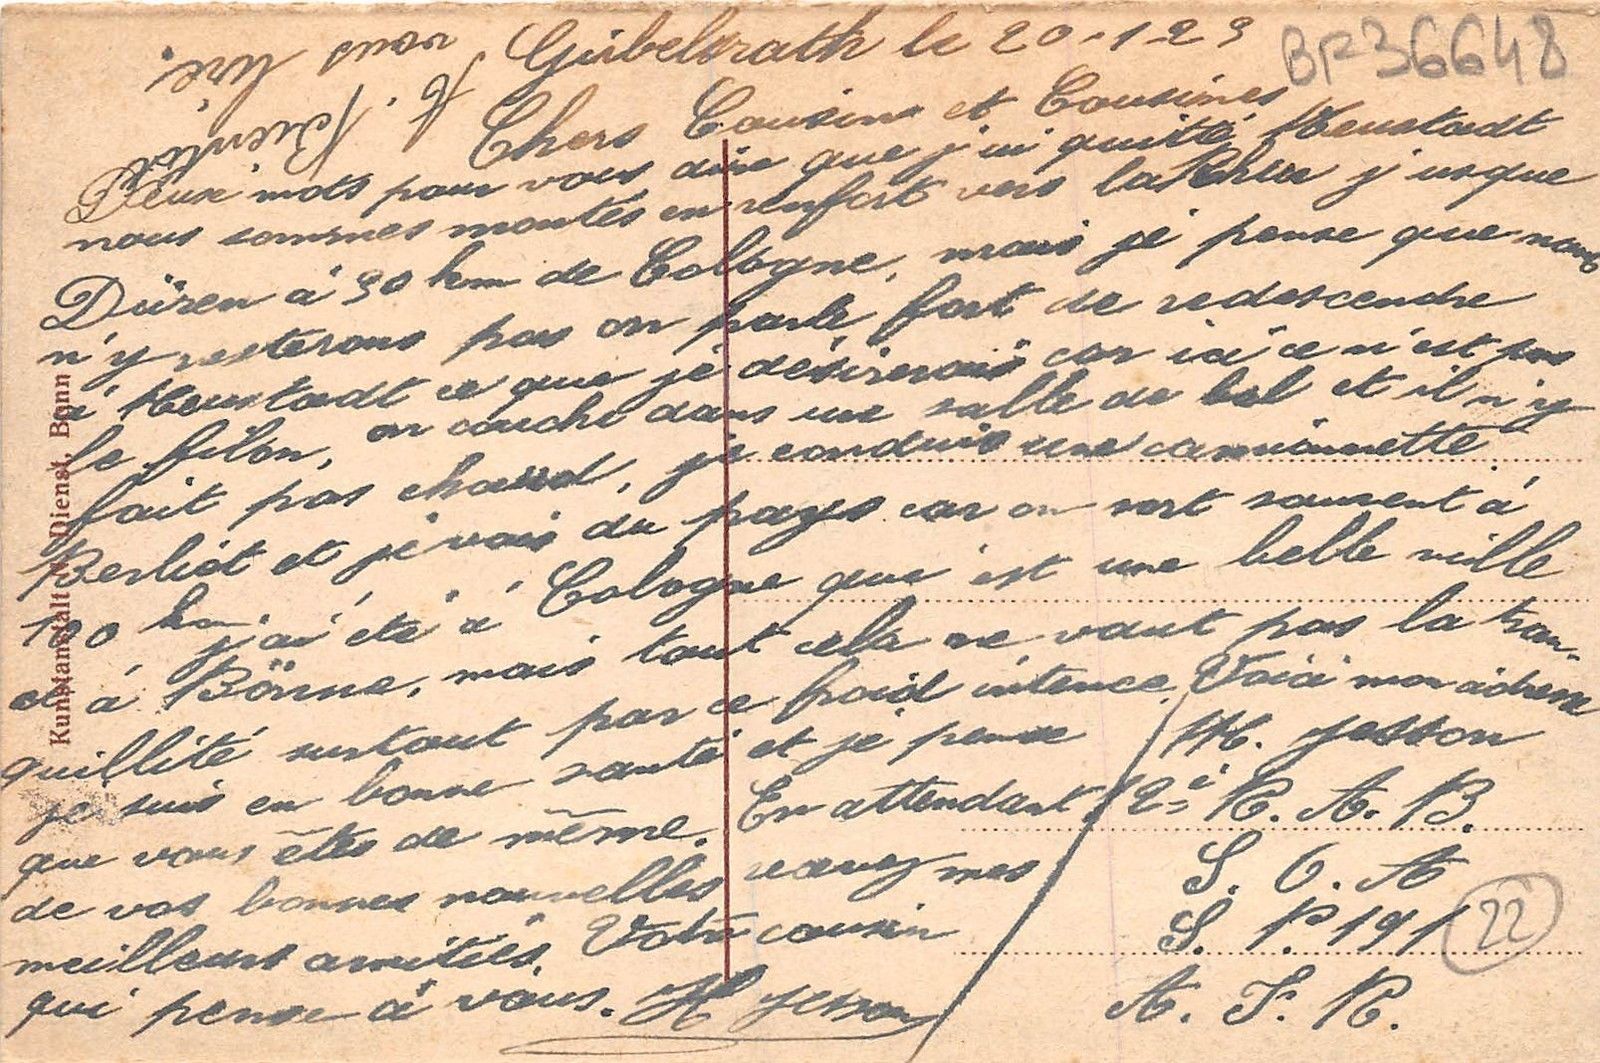 Girbelsrath le 20-1-23
BF36648
Chers Cousins et Cousines
Deux mots pour vous dire que j'ai quitté Neustadt
nous sommes montés en renfort vers la Rhur jusque
Düren à 30 km de Cologne, mais je pense que nous
n'y resterons pas on parle fort de redescendre
à Neustadt ce que je désirerais car ici ce n'est pas
le filon, on couche dans une salle de bal et il n'y
fait pas chaud, je conduis une camionnette
Berliet et je vais du pays car on sort souvent à
100 km j'ai été à Cologne qui est une belle ville
et à Bönne, mais tout cela ne vaut pas la tran-
quillité surtout par ce froid intence. Voici mon adresse
je suis en bonne santé et je pense
que vous êtes de même. En attendant
de vos bonnes nouvelles recevez mes
meilleurs amitiés. Votre cousin
qui pense à vous. H Jesson
M. Jesson
12è R. A. B.
S. O. A
S. P. 191
A. F. R.
22
A Bientôt
vous lire.
Kunstanstalt Dienst, Bonn